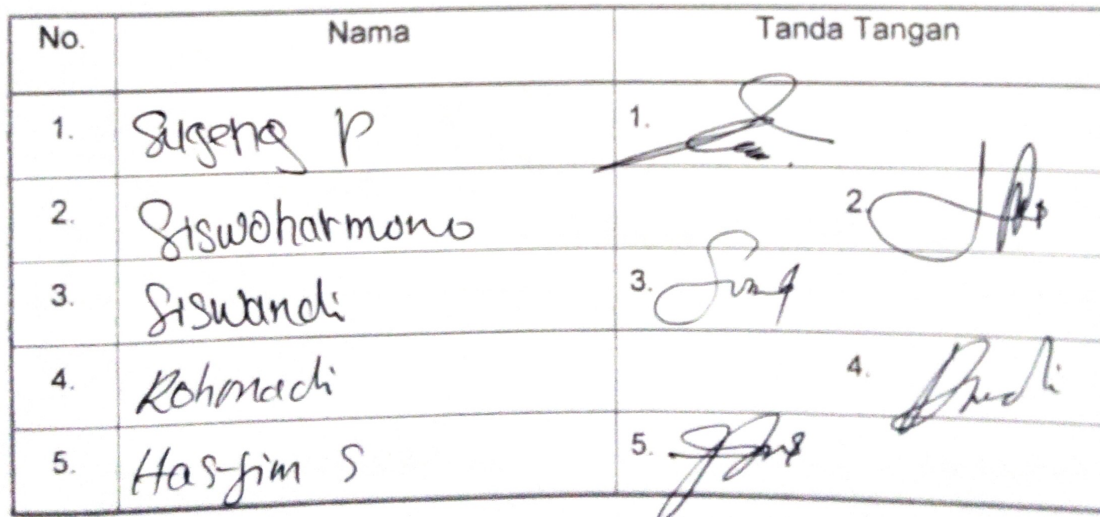 No. Nama Tanda Tangan
1. Sugeng P 1.
2. Siswoharmono 2.
3. Siswandi 3.
4. Rohmadi 4.
5. Hasjim S 5.